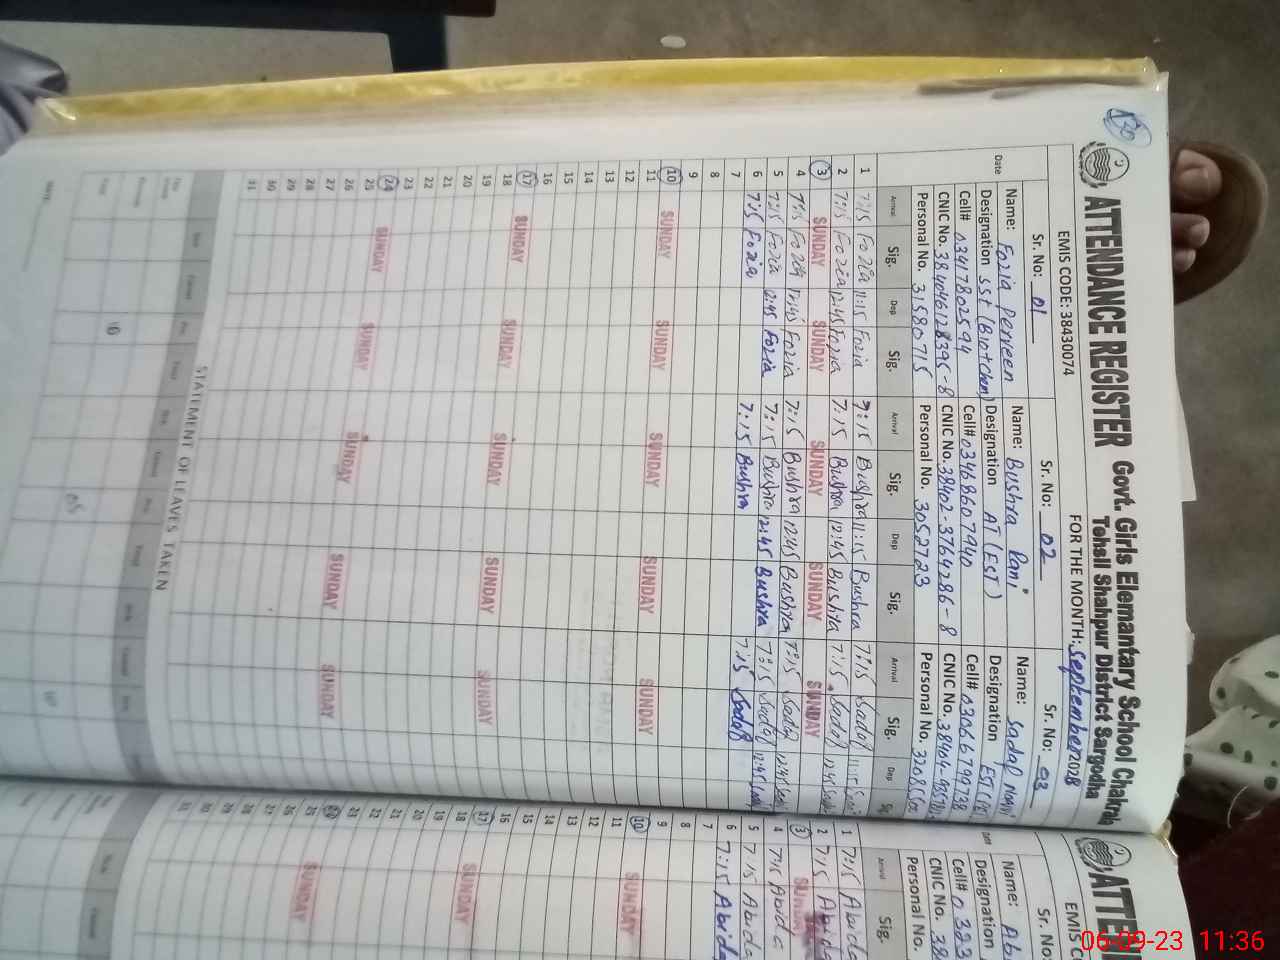 ATTENDANCE REGISTER Govt. Girls Elemantary School Chakrala
Tehsil Shahpur District Sargodha
EMIS CODE: 38430074 FOR THE MONTH: September 2023
Sr. No: 01 Sr. No: 02 Sr. No: 03
Name: Fozia Perveen Name: Bushra Rani Name: Sadaf
Designation SST (Bio+chem) Designation AT (EST) Designation EST
Cell# 03417802594 Cell# 03468607940 Cell# 03066799738
CNIC No. 384046128395-8 CNIC No. 38402-3764286-8 CNIC No. 38404-
Personal No. 31580715 Personal No. 30527723 Personal No.
Date Arrival Sig. Dep Sig. Arrival Sig. Dep Sig. Arrival Sig. Dep
1 7:15 Fozia 11:15 Fozia 7:15 Bushra 11:15 Bushra 7:15 Sadaf 11:15
2 7:15 Fozia 12:45 Fozia 7:15 Bushra 12:45 Bushra 7:15 Sadaf 12:45
3 SUNDAY SUNDAY SUNDAY SUNDAY SUNDAY
4 7:15 Fozia 12:45 Fozia 7:15 Bushra 12:45 Bushra 7:15 Sadaf 12:45
5 7:15 Fozia 12:45 Fozia 7:15 Bushra 12:45 Bushra 7:15 Sadaf 12:45
6 7:15 Fozia 7:15 Bushra 7:15 Sadaf
7
8
9
10 SUNDAY SUNDAY SUNDAY SUNDAY SUNDAY
11
12
13
14
15
16
17 SUNDAY SUNDAY SUNDAY SUNDAY SUNDAY
18
19
20
21
22
23
24 SUNDAY SUNDAY SUNDAY SUNDAY SUNDAY
25
26
27
28
29
30
31
STATEMENT OF LEAVES TAKEN
ATTEN
EMIS C
Sr. No:
Name: Ab
Designation
Cell# 0323
CNIC No. 38
Personal No.
Date Arrival Sig.
1 7:15 Abida
2 7:15 Abida
3 SUNDAY
4 7:15 Abida
5 7:15 Abida
6 7:15 Abida
7
8
9
10 SUNDAY
11
12
13
14
15
16
17 SUNDAY
18
19
20
21
22
23
24 SUNDAY
25
26
27
28
29
30
31
06-09-23 11:36